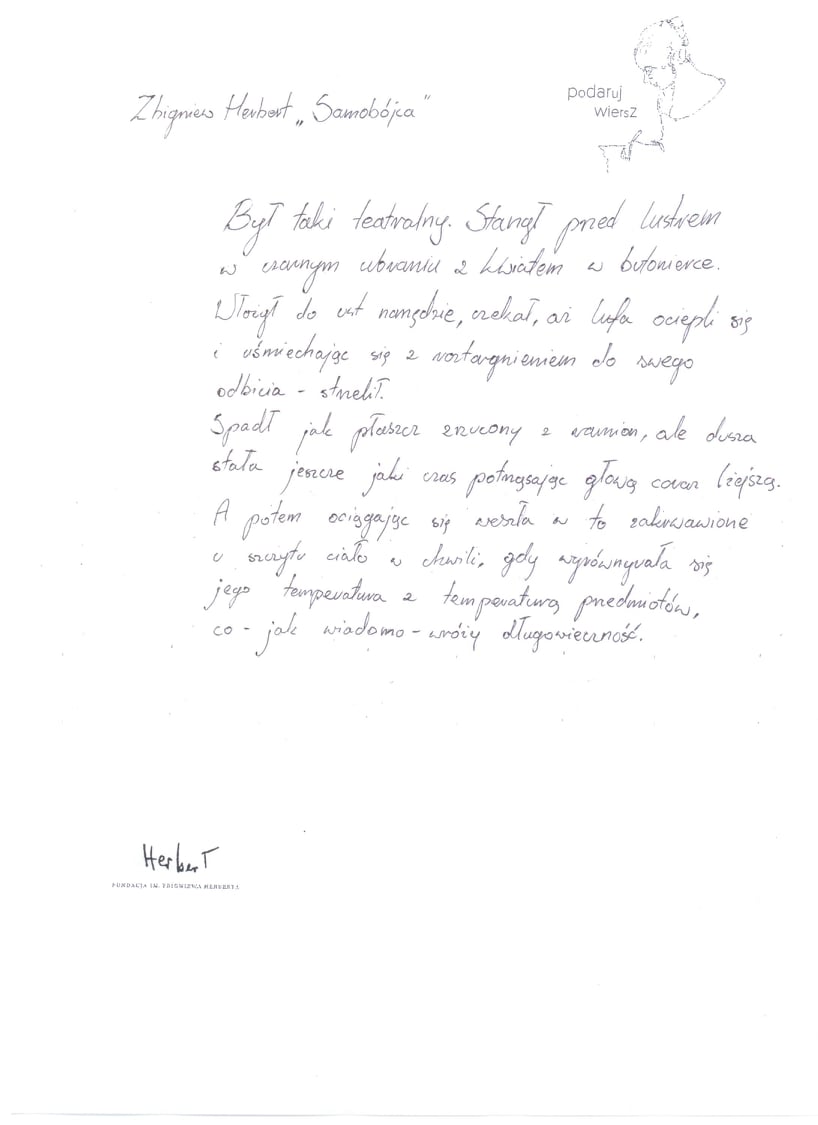 Zbigniew Herbert „Samobójca"
podaruj
wiersz
Był taki teatralny. Stanął przed lustrem
w czarnym ubraniu z kwiatem w butonierce.
Włożył do ust narzędzie, czekał, aż lufa ociepli się
i uśmiechając się z roztargnieniem do swego
odbicia - strzelił.
Spadł jak płaszcz zrzucony z ramion, ale dusza
stała jeszcze jakiś czas potrząsając głową coraz lżejszą.
A potem ociągając się weszła w to zakrwawione
u szczytu ciało w chwili, gdy wyrównywała się
jego temperatura z temperaturą przedmiotów,
co - jak wiadomo - wróży długowieczność.
Herbert
FUNDACJA IM. ZBIGNIEWA HERBERTA